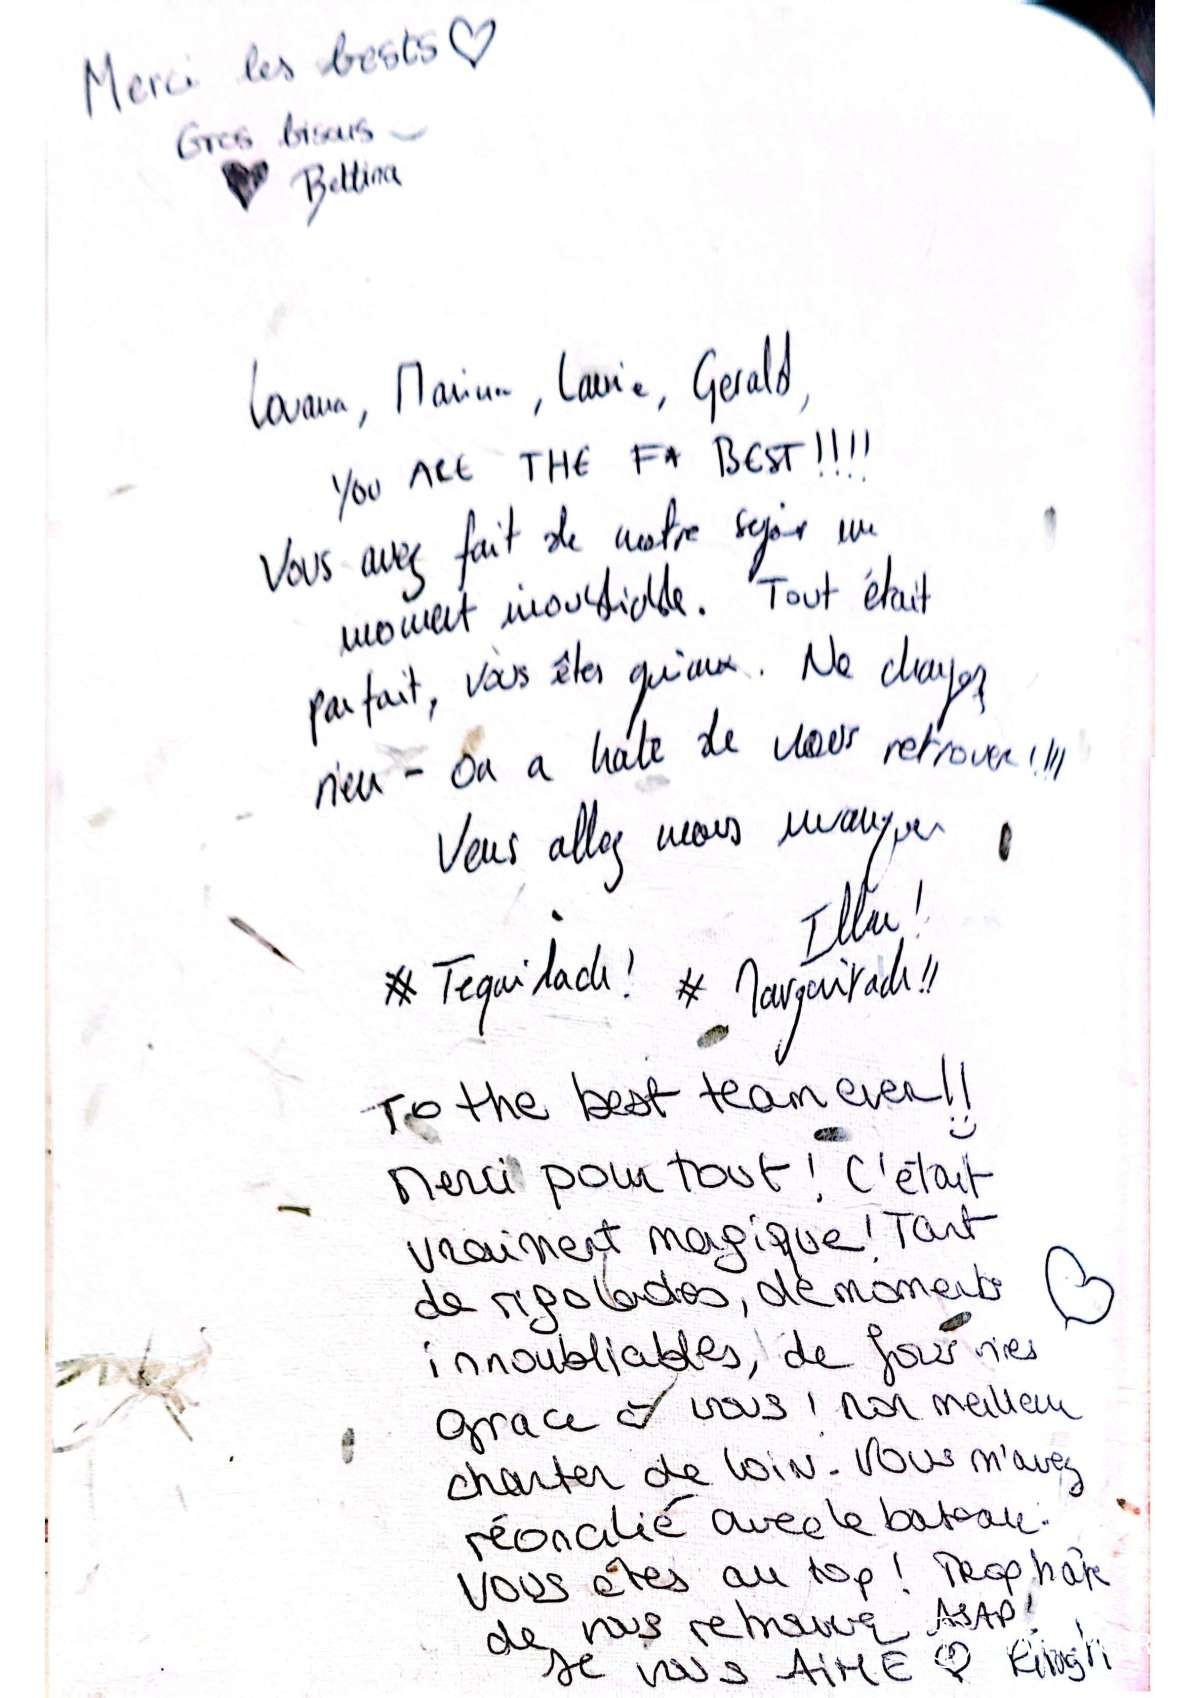 Merci les bests
Gros bisous
Bettina
Lovana, , Laurie, Gerald,
YOU ARE THE F* BEST!!!!
Vous avez fait de notre séjour un
moment inoubliable. Tout était
parfait, vous êtes géniaux. Ne changez
rien - On a hâte de vous retrouver !!!!
Vous allez nous manquer
# Tequilach! #
To the best team ever!!
Merci pour tout! C'était
vraiment magique! Tant
de rigolades, de moments
innoubliables, de fous rires
grace à vous! mon meilleur
charter de loin. Vous m'avez
réoncilié avec le bateau.
Vous êtes au top! Trop hâte
de vous retrouver ASAP!
Je vous AIME